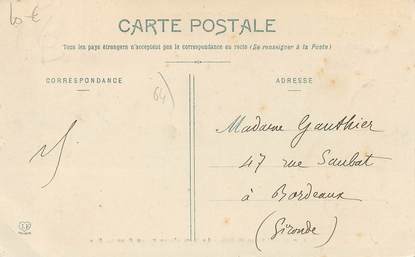 10 €
CARTE POSTALE
Tous les pays étrangers n'acceptent pas la correspondance au recto (Se renseigner à la Poste)
CORRESPONDANCE
ADRESSE
64)
Madame Gauthier
47 rue Saubat
à Bordeaux
(Gironde)